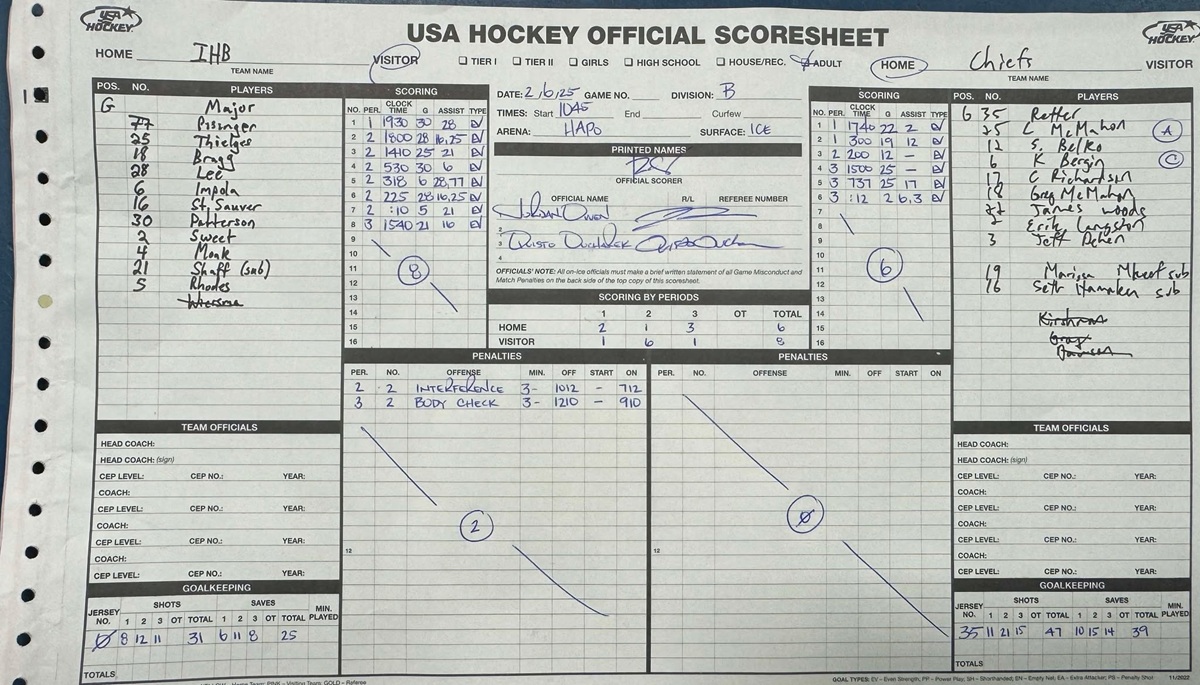 USA HOCKEY
USA HOCKEY OFFICIAL SCORESHEET
USA HOCKEY
HOME IHB VISITOR
TEAM NAME
☐ TIER I ☐ TIER II ☐ GIRLS ☐ HIGH SCHOOL ☐ HOUSE/REC. ☐ ADULT
HOME Chiefs VISITOR
TEAM NAME
POS. NO. PLAYERS
G Major
77 Pisinger
25 Thielges
18 Bragg
28 Lee
6 Impola
16 St. Sauver
30 Patterson
2 Sweet
4 Monk
21 Shaff (sub)
5 Rhodes
SCORING
NO. PER. CLOCK TIME G ASSIST TYPE
1 1 1930 30 28 EV
2 2 1800 28 16,25 EV
3 2 1410 25 21 EV
4 2 530 30 6 EV
5 2 318 6 28,77 EV
6 2 225 28 16,25 EV
7 2 :10 5 21 EV
8 3 1540 21 16 EV
9
10
11
12
13
14
15
16
8
DATE: 2/6/25 GAME NO. DIVISION: B
TIMES: Start 1045 End Curfew
ARENA: HAPO SURFACE: ICE
PRINTED NAMES
OFFICIAL SCORER
OFFICIAL NAME R/L REFEREE NUMBER
Jordan Owen
2
3 Cristo Ducharek
4
OFFICIALS' NOTE: All on-ice officials must make a brief written statement of all Game Misconduct and
Match Penalties on the back side of the top copy of this scoresheet.
SCORING BY PERIODS
1 2 3 OT TOTAL
HOME 2 1 3 6
VISITOR 1 6 1 8
SCORING
NO. PER. CLOCK TIME G ASSIST TYPE
1 1 1740 22 2 EV
2 1 300 19 12 EV
3 2 200 12 - EV
4 3 1500 25 - EV
5 3 737 25 17 EV
6 3 :12 2 6,3 EV
7
8
9
10
11
12
13
14
15
16
6
POS. NO. PLAYERS
G 35 Retter
25 L McMahon A
12 S. Belko
6 K Bergin C
17 C Richardson
18 Greg McMahon
22 James Woods
2 Erik Langston
3 Jeff Dehen
19 Marissa sub
16 Seth Hamaker sub
PENALTIES
PER. NO. OFFENSE MIN. OFF START ON
2 2 INTERFERENCE 3- 1012 - 712
3 2 BODY CHECK 3- 1210 - 910
12
2
PENALTIES
PER. NO. OFFENSE MIN. OFF START ON
12
0
TEAM OFFICIALS
HEAD COACH:
HEAD COACH: (sign)
CEP LEVEL: CEP NO.: YEAR:
COACH:
CEP LEVEL: CEP NO.: YEAR:
COACH:
CEP LEVEL: CEP NO.: YEAR:
COACH:
CEP LEVEL: CEP NO.: YEAR:
GOALKEEPING
JERSEY NO. SHOTS 1 2 3 OT TOTAL SAVES 1 2 3 OT TOTAL MIN. PLAYED
0 8 12 11 31 6 11 8 25
TOTALS
TEAM OFFICIALS
HEAD COACH:
HEAD COACH: (sign)
CEP LEVEL: CEP NO.: YEAR:
COACH:
CEP LEVEL: CEP NO.: YEAR:
COACH:
CEP LEVEL: CEP NO.: YEAR:
COACH:
CEP LEVEL: CEP NO.: YEAR:
GOALKEEPING
JERSEY NO. SHOTS 1 2 3 OT TOTAL SAVES 1 2 3 OT TOTAL MIN. PLAYED
35 11 21 15 47 10 15 14 39
TOTALS
GOAL TYPES: EV – Even Strength, PP – Power Play, SH – Shorthanded, EN – Empty Net, EA – Extra Attacker, PS – Penalty Shot 11/2022